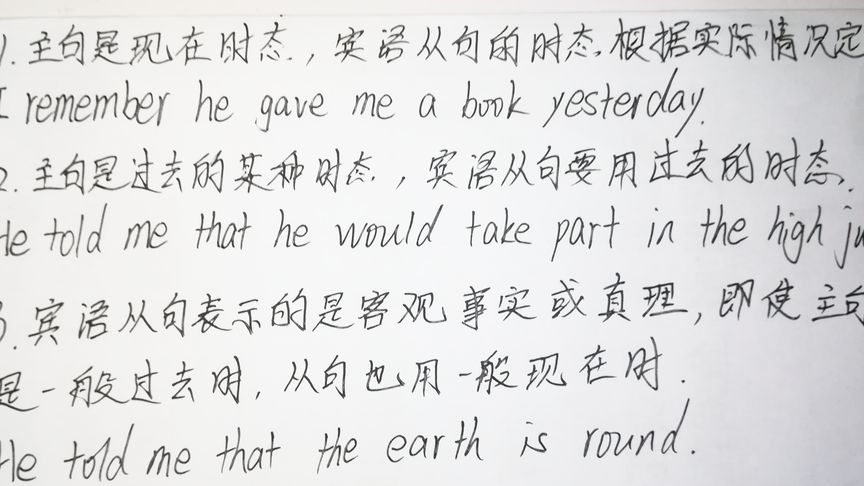 1. 主句是现在时态，宾语从句的时态，根据实际情况定
I remember he gave me a book yesterday.
2. 主句是过去的某种时态，宾语从句要用过去的时态，
He told me that he would take part in the high ju
3. 宾语从句表示的是客观事实或真理，即使主句
是一般过去时，从句也用一般现在时.
He told me that the earth is round.